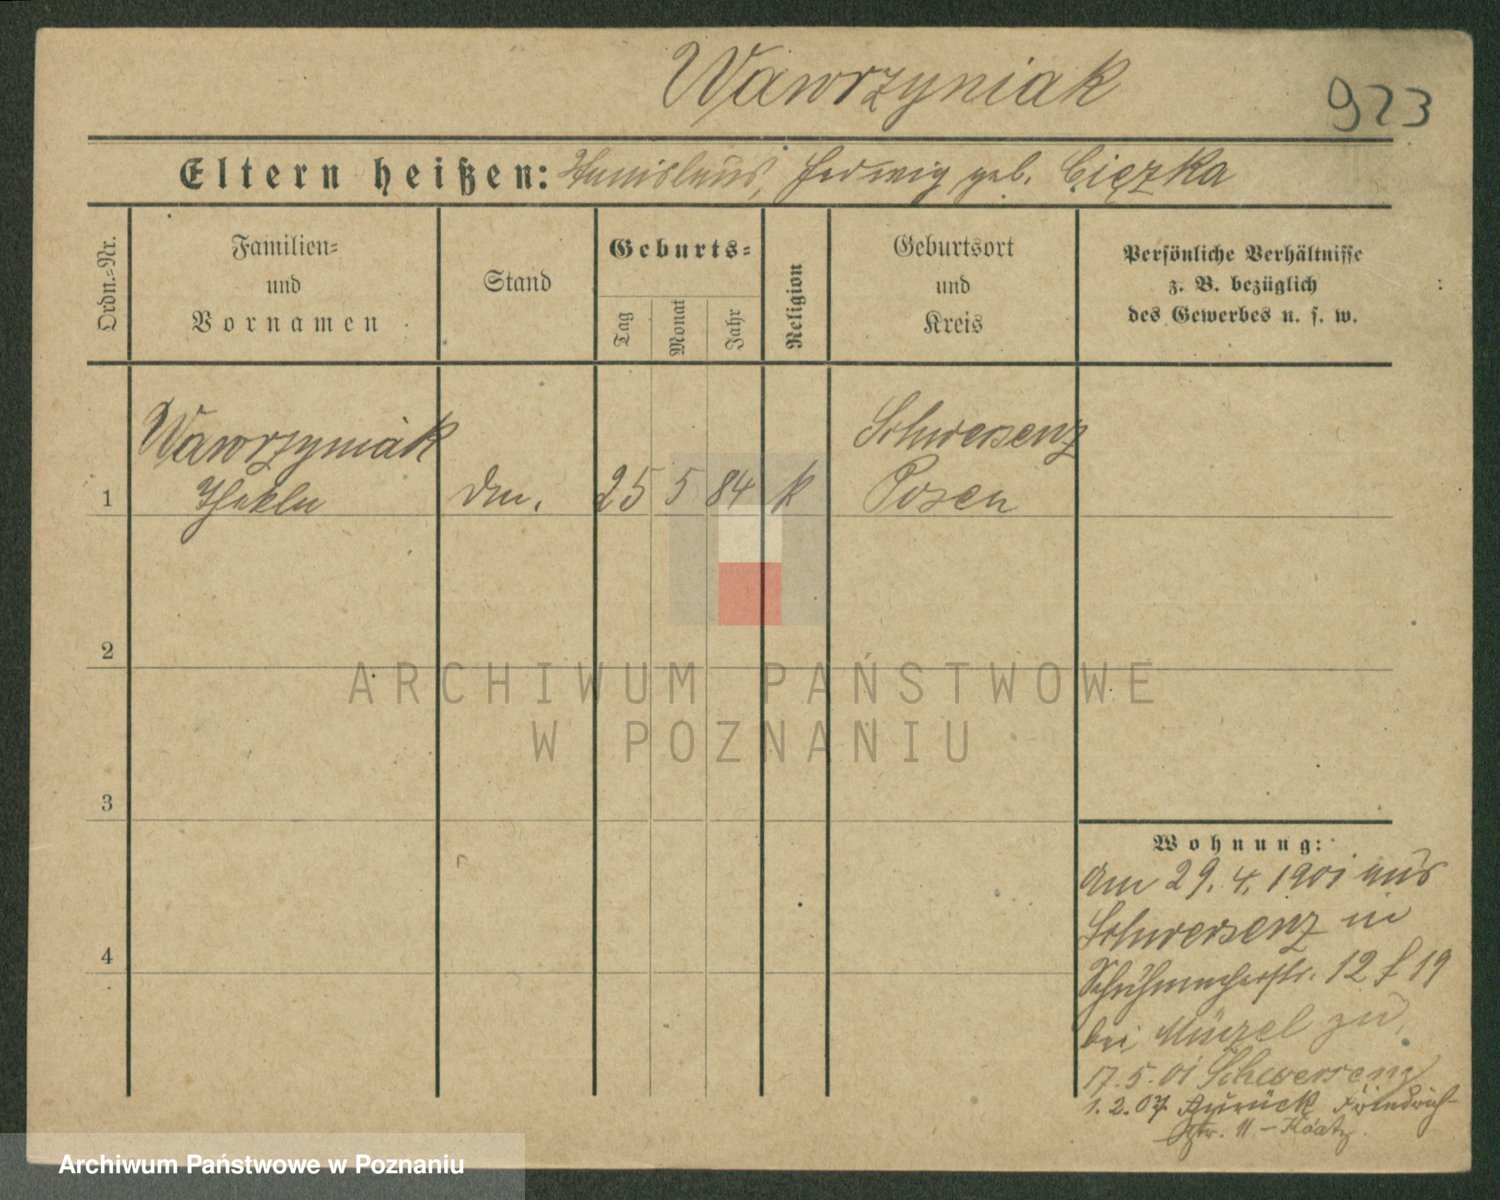 Wawrzyniak
923
Eltern heißen: Stanislaus, Hedwig geb. Ciężka
Ordn.-Nr.
Familien-
und
Vornamen
Stand
Geburts-
Tag
Monat
Jahr
Religion
Geburtsort
und
Kreis
Persönliche Verhältnisse
z. B. bezüglich
des Gewerbes u. s. w.
Wawrzyniak Schwersenz
1 Thekla 25 5 84 k Posen
2
ARCHIWUM PAŃSTWOWE
W POZNANIU
3
Wohnung:
Am 29. 4. 1901 aus
Schwersenz in
4
Schuhmacherstr. 12 19
bei zu
17.5.01 Schwersenz
1.2.07 zurück Friedrich-
str. 11 -
Archiwum Państwowe w Poznaniu